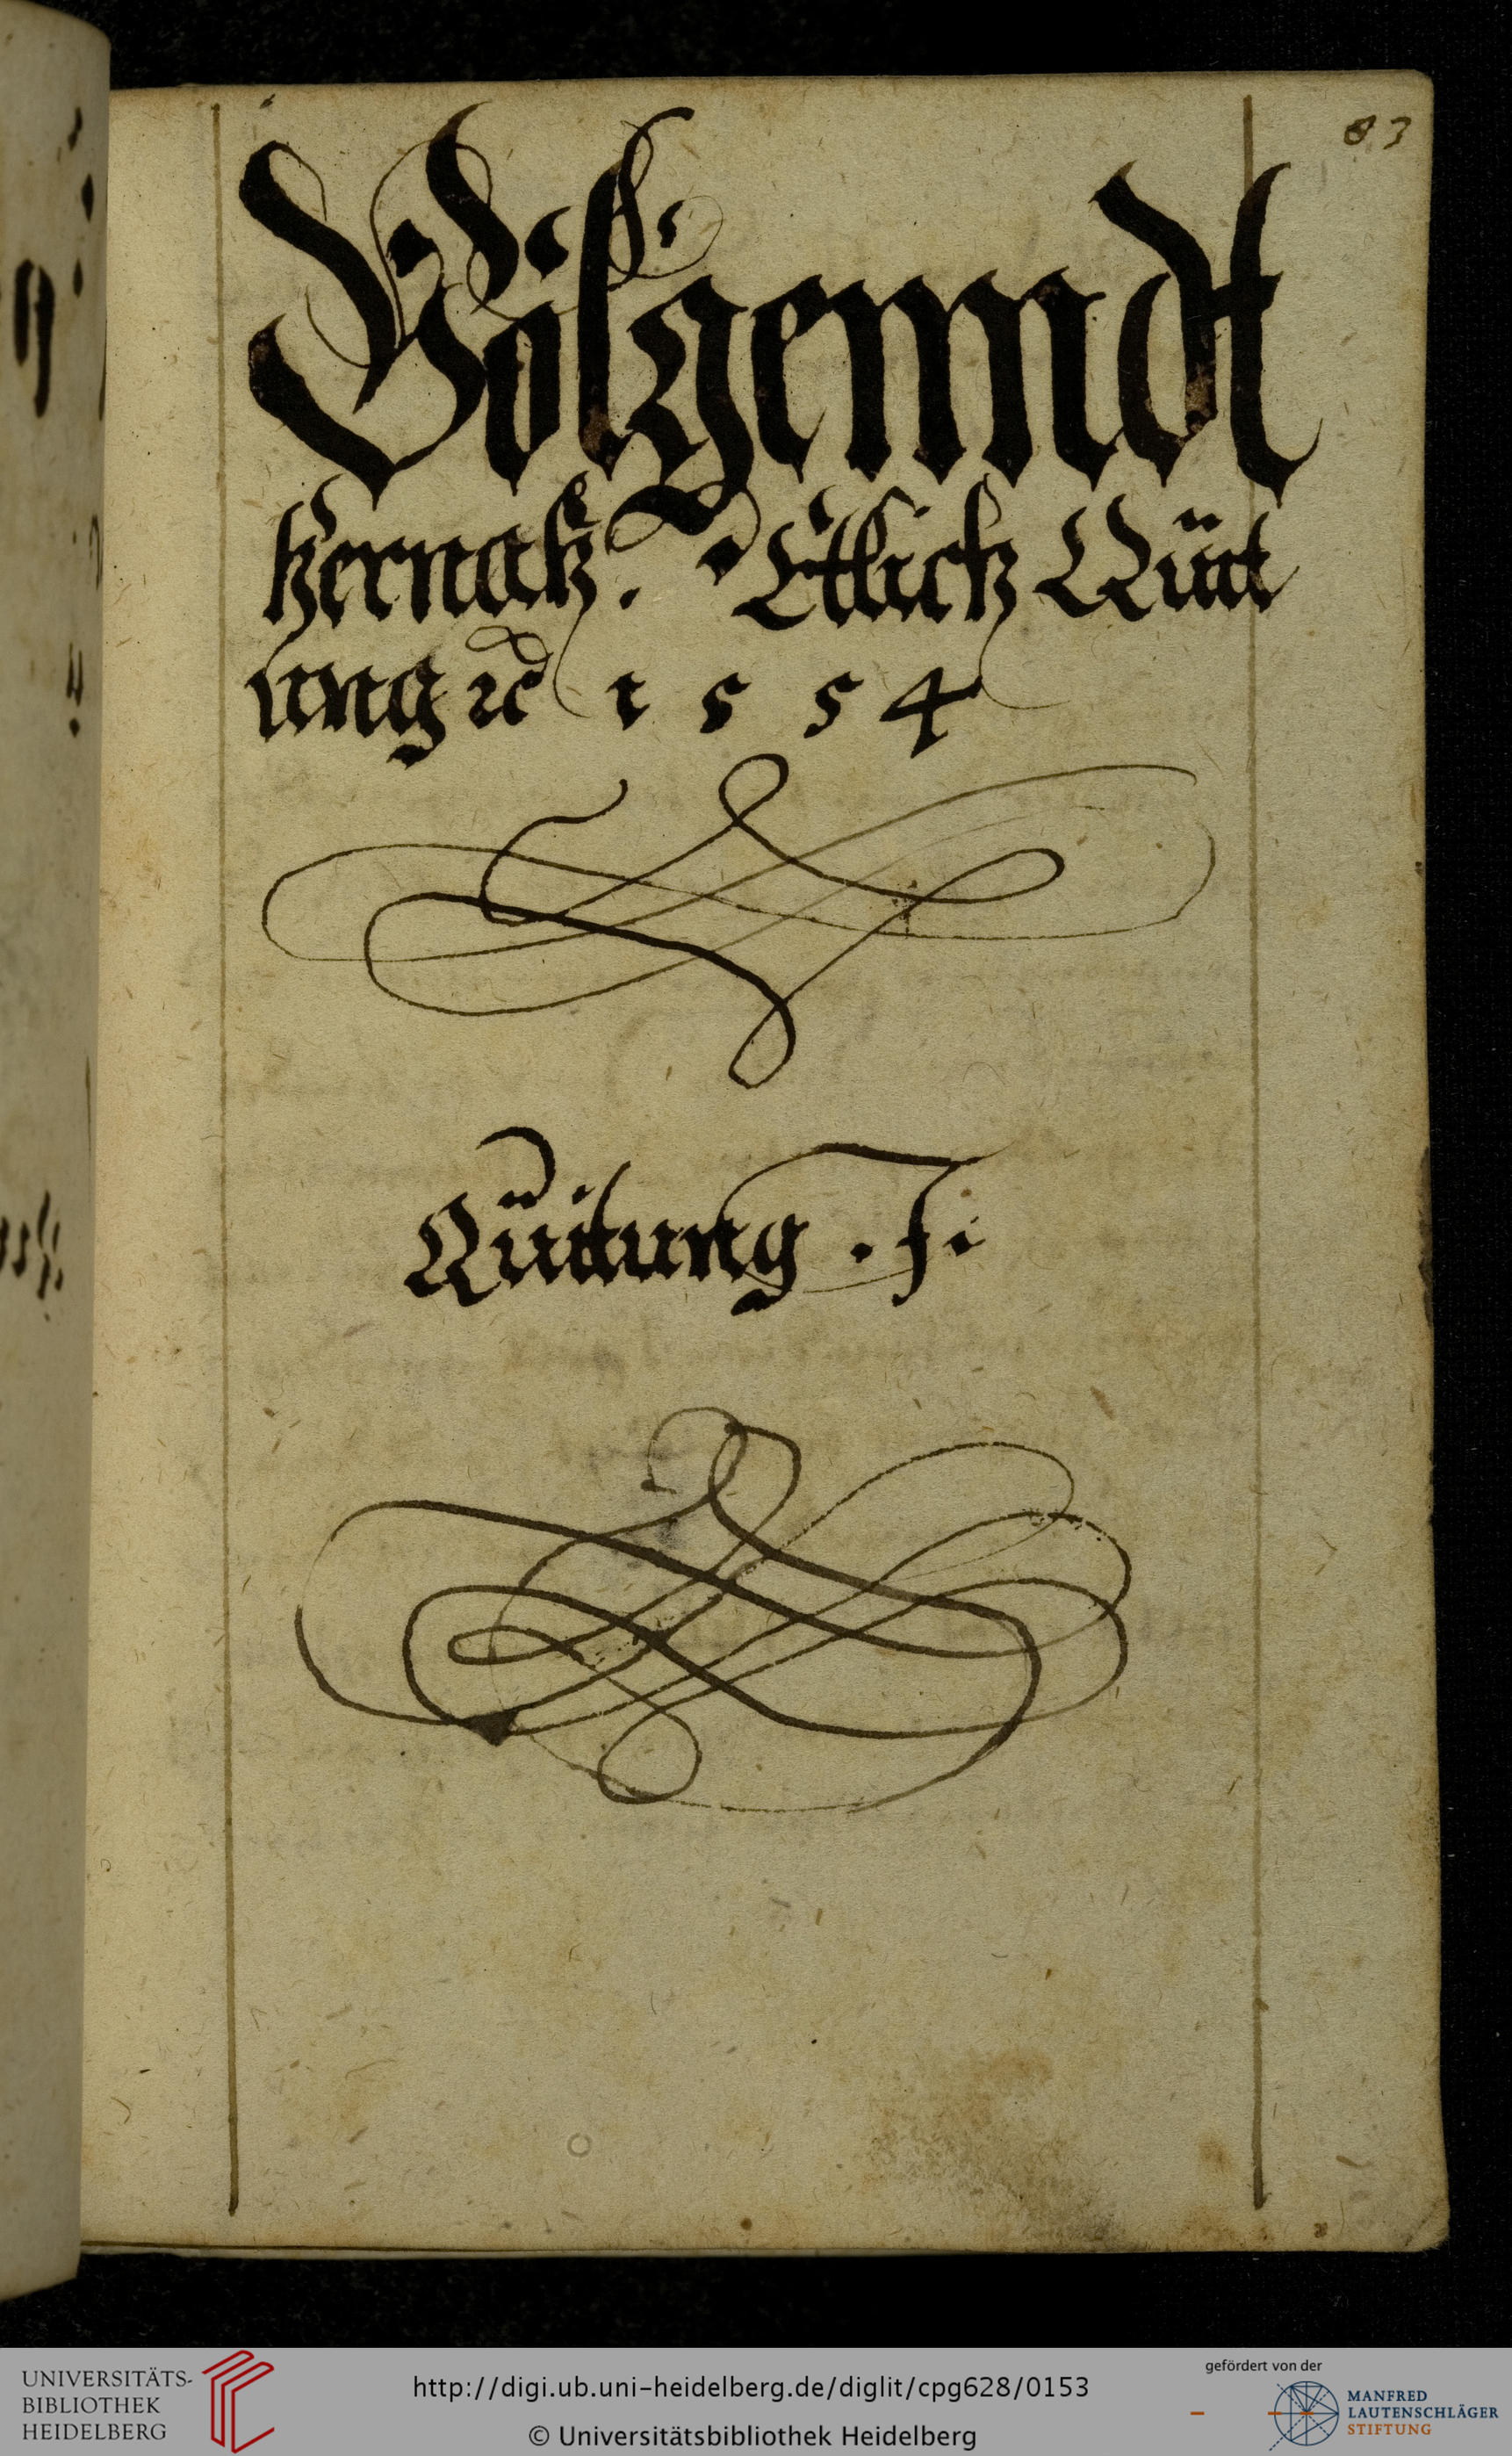 83
Volgenndt
hernach. Etlich Quit
ung ꝛc 1554
Quitung . J.
UNIVERSITÄTS-
BIBLIOTHEK
HEIDELBERG
http://digi.ub.uni-heidelberg.de/diglit/cpg628/0153
© Universitätsbibliothek Heidelberg
gefördert von der
MANFRED
LAUTENSCHLÄGER
STIFTUNG